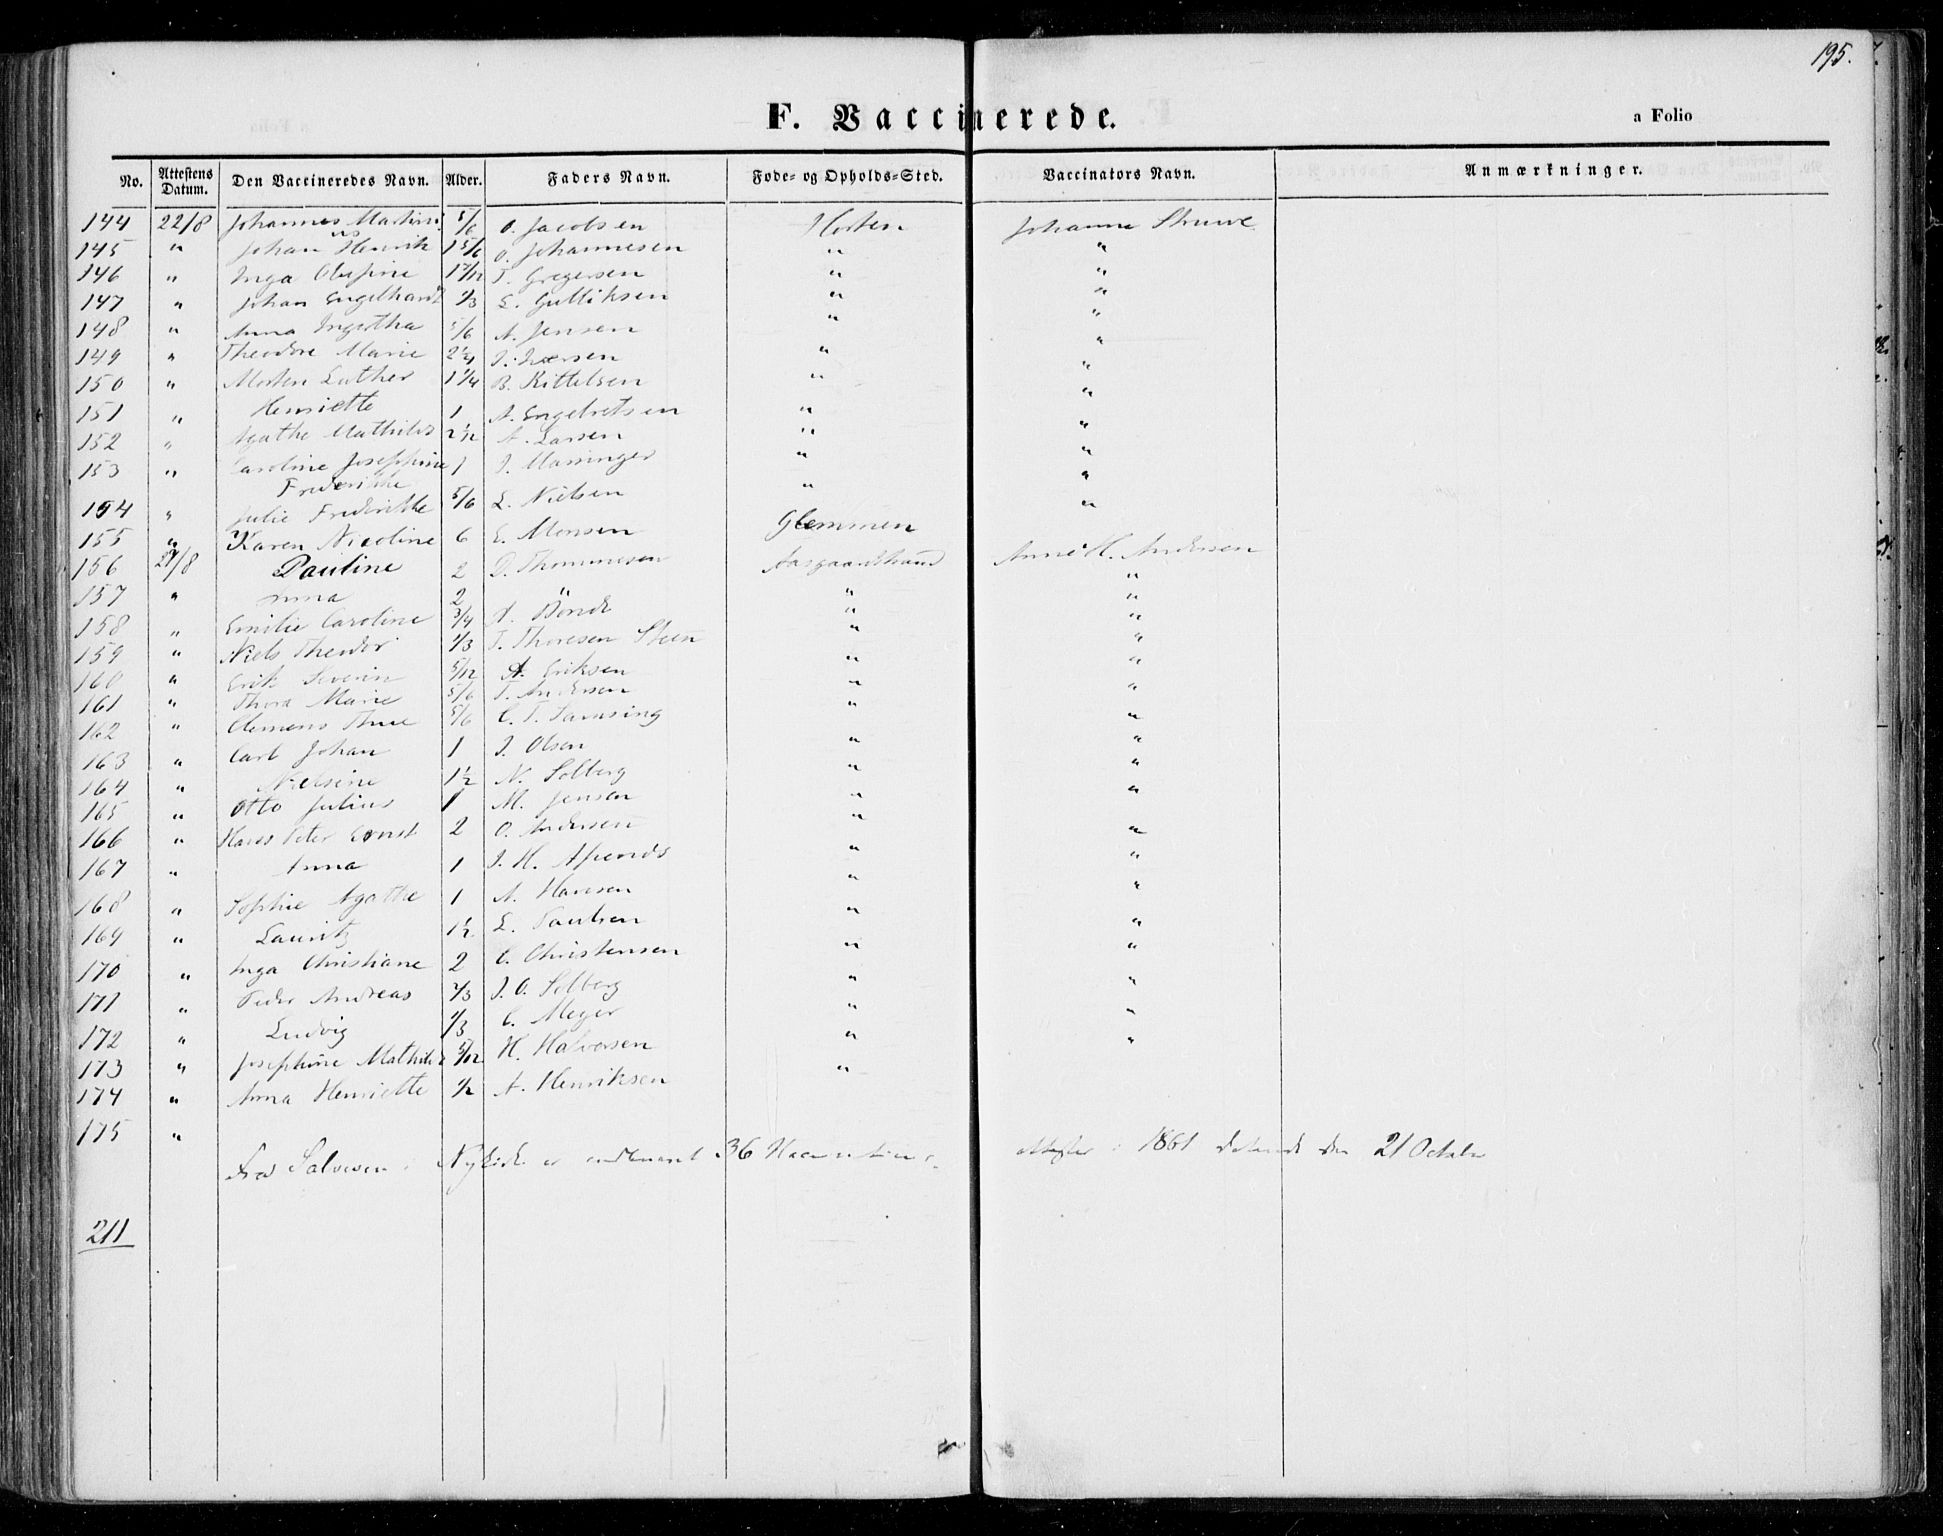 195.
F. Vaccinerede.
a Folio
No. Attestens Datum. Den Vaccineredes Navn. Alder. Faders Navn. Føde- og Opholds-Sted. Vaccinators Navn. Anmærkninger.
144 22/8 Johannes Martini 5/6 O. Jacobsen Horten Johanna Struwe
145 " Johan Henrik 1 5/6 O. Johannesen " "
146 " Inga Olufine 1 7/12 T. Gregersen " "
147 " Johan Engelhardt 1/3 L. Gulliksen " "
148 " Anna Ingertha 5/6 A. Jensen " "
149 " Theodore Marie 2 1/4 J. Iversen " "
150 " Morten Luther 1 1/4 B. Kittelsen " "
151 " Henriette 1 A. Engebretsen " "
152 " Agathe Mathilde 2 1/12 A. Larsen " "
153 " Caroline Josephine 1 J. "
Frederikke
154 " Julie Frederikke 5/6 L. Nielsen " "
155 " Karen Nicoline 6 E. Monsen Glemmen "
156 27/8 Pauline 2 D. Thommesen Aasgaardstrand Anne H. Andersen
157 " Anna 2 " " "
158 " Emilie Caroline 3/4 A. Bonde " "
159 " Niels Theodor 1/3 T. Thoresen Steen " "
160 " Erik Severin 5/12 A. Eriksen " "
161 " Thora Marie 5/6 T. Andersen " "
162 " Clemens Thue 5/6 C. T. Samsing " "
163 " Carl Johan 1 J. Olsen " "
164 " Nielsine 1 1/2 N. Solberg " "
165 " Otto Julius 1 M. Jensen " "
166 " Hans Peter Ernst 2 O. Andersen " "
167 " Anna 1 J. H. " "
168 " Sophie Agathe 1 A. Hansen " "
169 " Lauritz 1 1/2 L. Paulsen " "
170 " Inga Christiane 2 C. Christensen " "
171 " Peder Andreas 2/3 J. O. Solberg " "
172 " Ludvig 1/3 C. Meyer " "
173 " Josephine Mathilde 5/12 H. Halvorsen " "
174 " Anna Henriette 1/2 A. Henriksen "
175 "
Fra Salvesen i Nykirke er 36 attester i 1861 daterede den 21 October
211